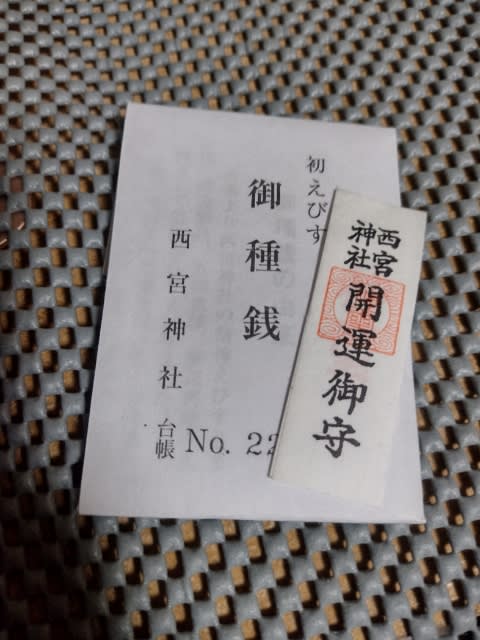 初えびす
御種銭
西宮神社
台帳
No. 22
西宮
神社
開運御守